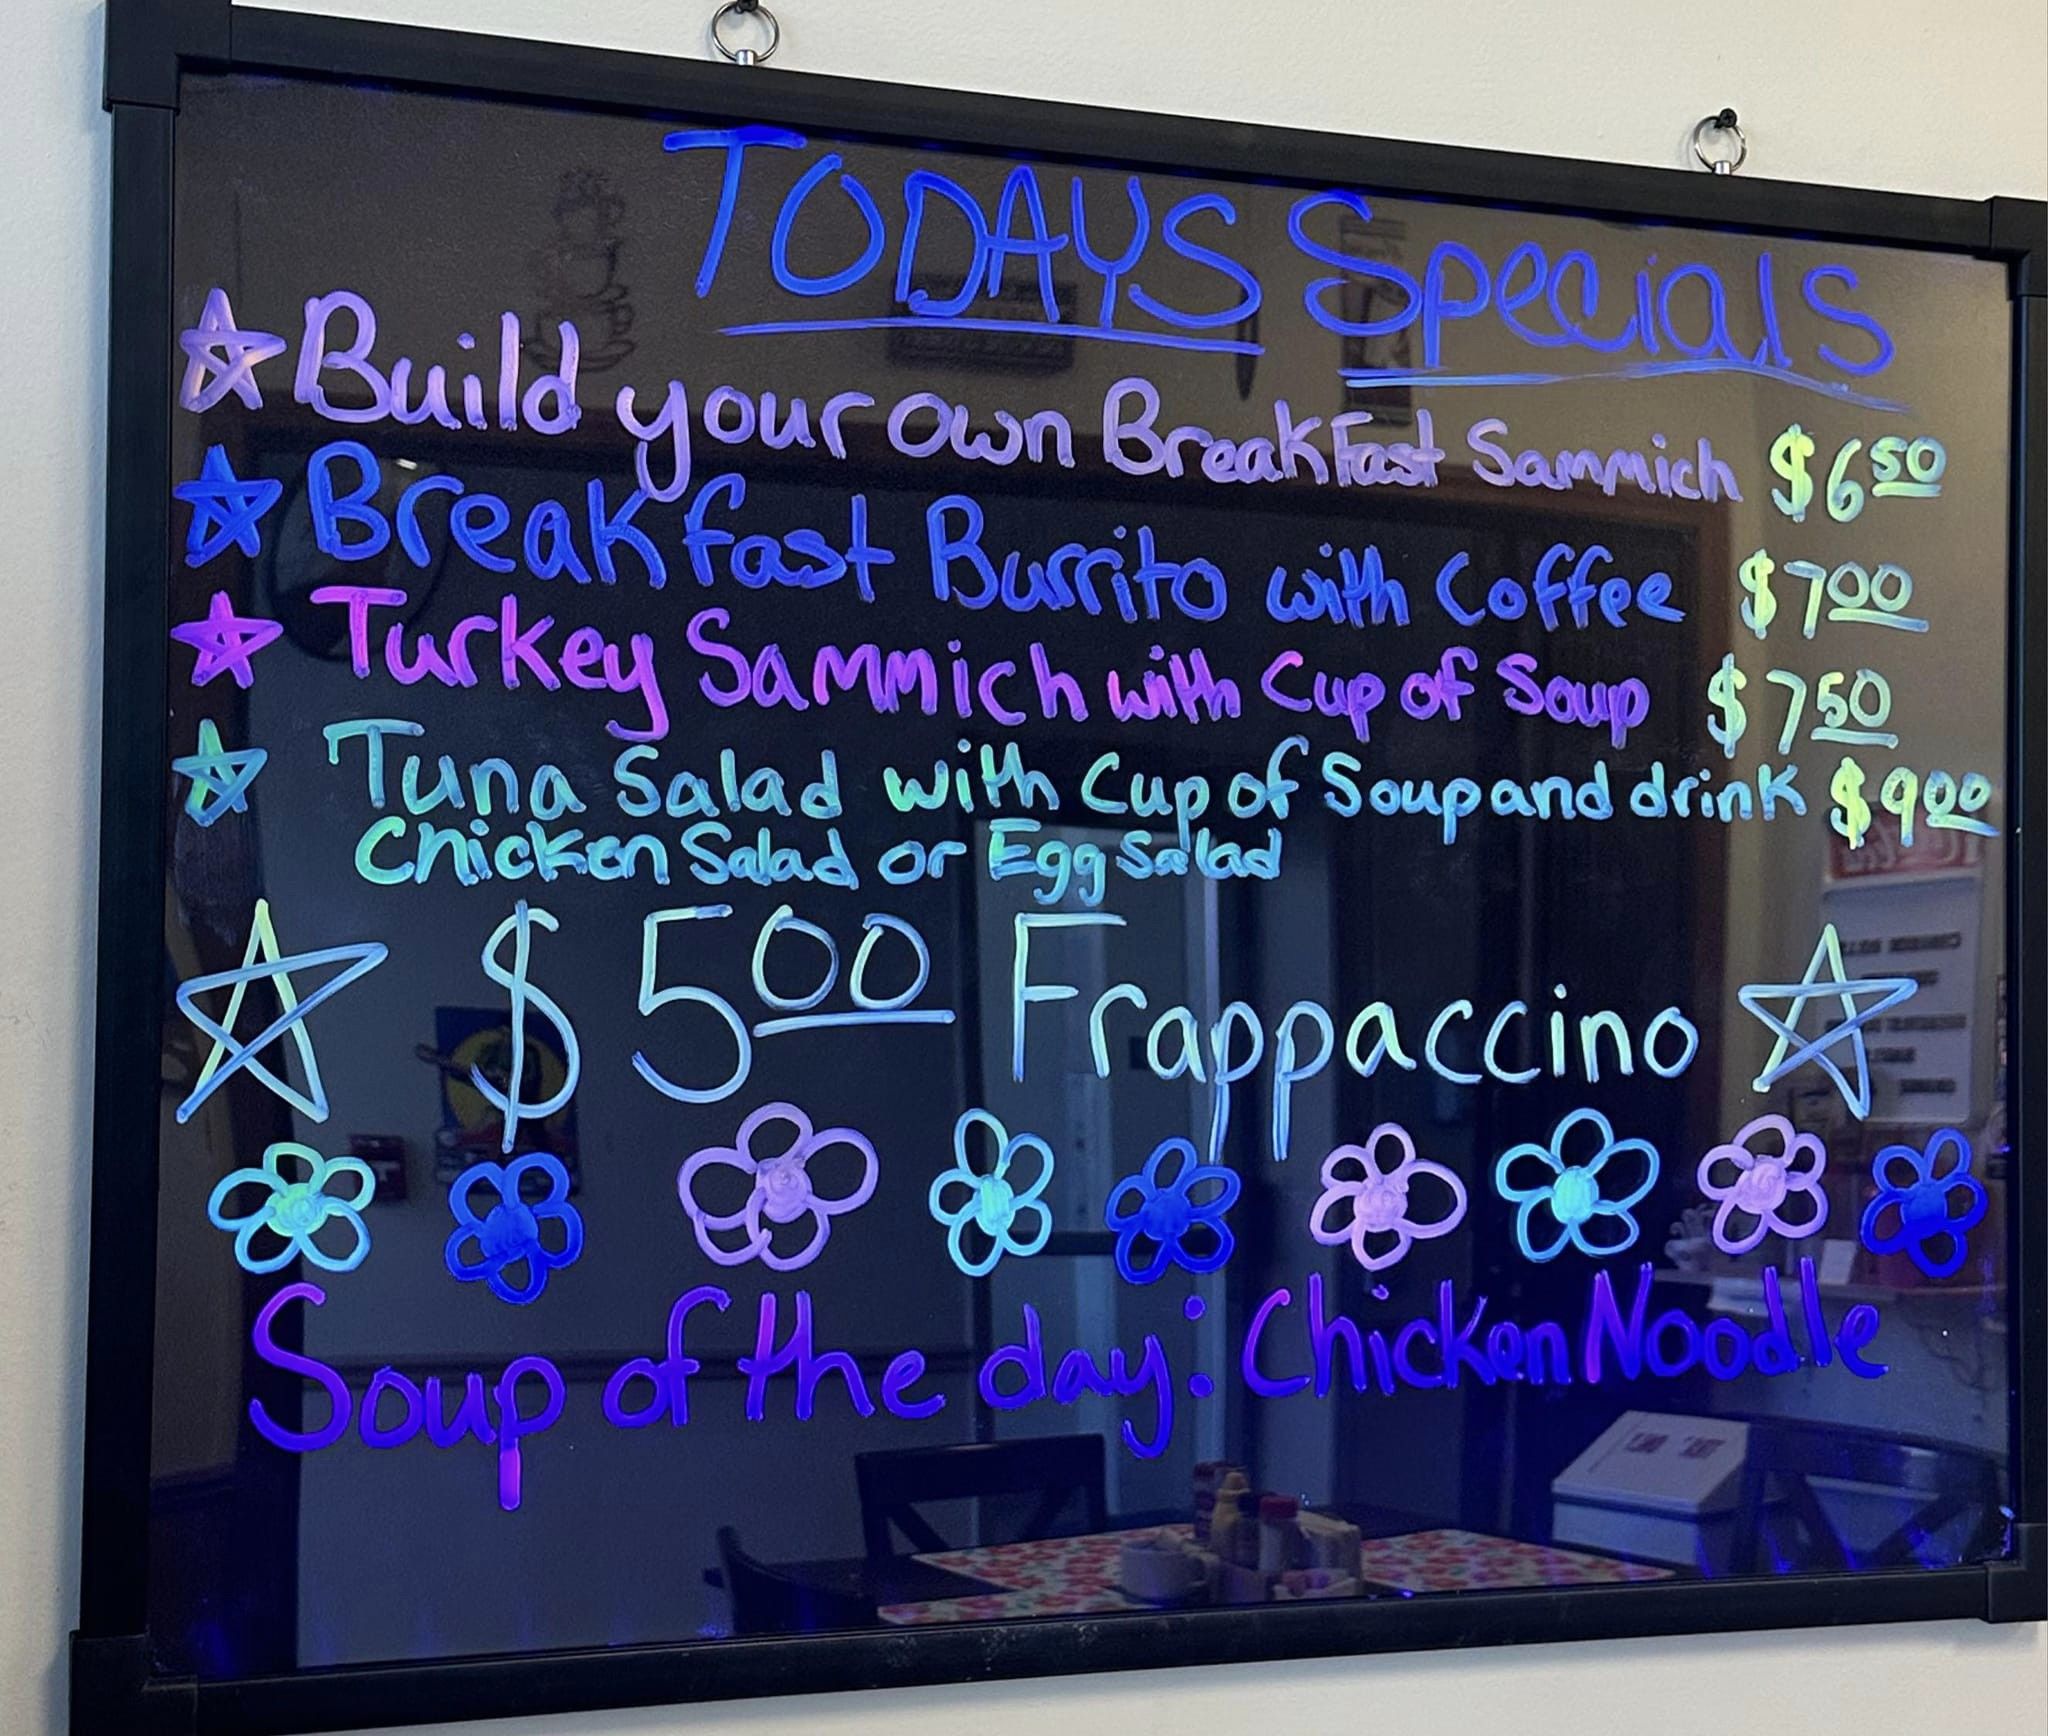 TODAYS Specials
Build your own Breakfast Sammich $6 50
Breakfast Burrito with Coffee $7 00
Turkey Sammich with Cup of Soup $7 50
Tuna Salad with Cup of Soup and drink $9 00
Chicken Salad or Egg Salad
$5 00 Frappaccino
Soup of the day: Chicken Noodle